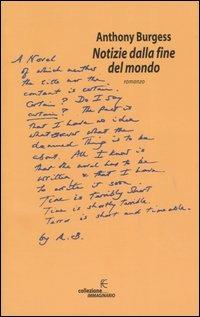 Anthony Burgess
Notizie dalla fine
del mondo
romanzo
A Novel
of which neither
the title nor the
content is certain.
Certain? Do I say
certain? The fact is
that I have no idea
whatsoever what the
damned thing is to be
about. All I know is
that the novel has to be
written, & that I have
to write it soon.
Time is terribly short
Time is shortly terrible.
Terror is short and timeable.
by A.B.
collezione
IMMAGINARIO